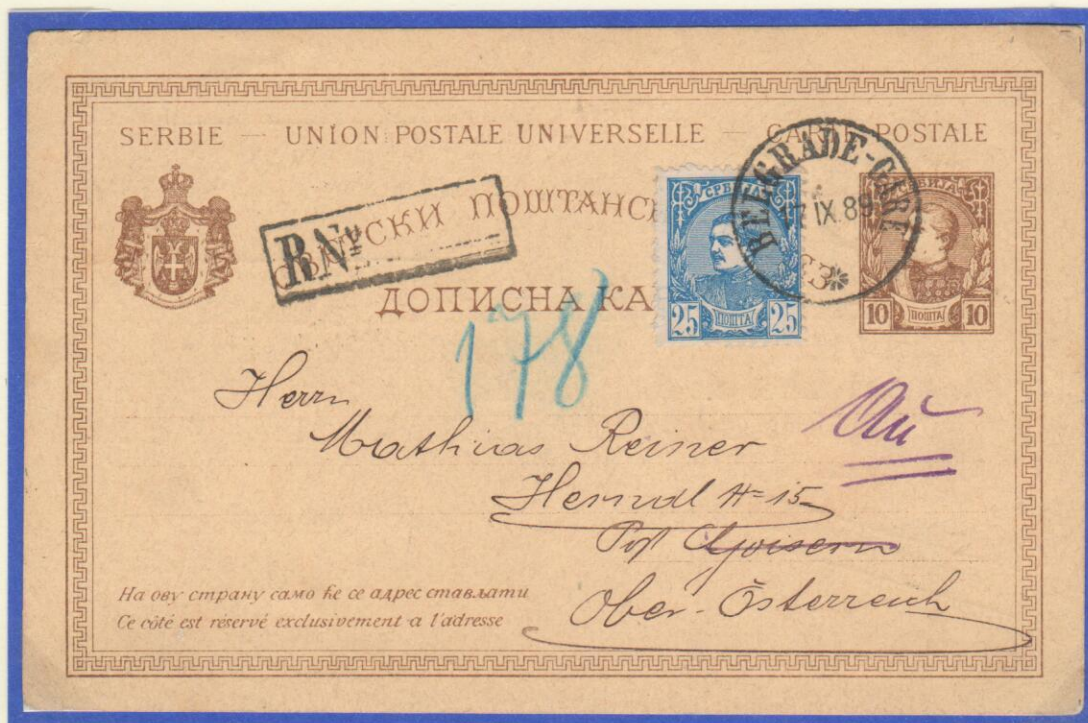 SERBIE — UNION POSTALE UNIVERSELLE — CARTE POSTALE
СВЕТСКИ ПОШТАНСКИ
R Nº
ДОПИСНА КА
178
СРБИЈА
25 ПОШТА 25
BELGRADE-GARE
IX 89
СРБИЈА
10 ПОШТА 10
Herrn
Mathias Reiner
Au
Herndl № 15
Post Goisern
Ober-Österreich
На ову страну само ће се адрес стављати
Ce côté est réservé exclusivement a l'adresse